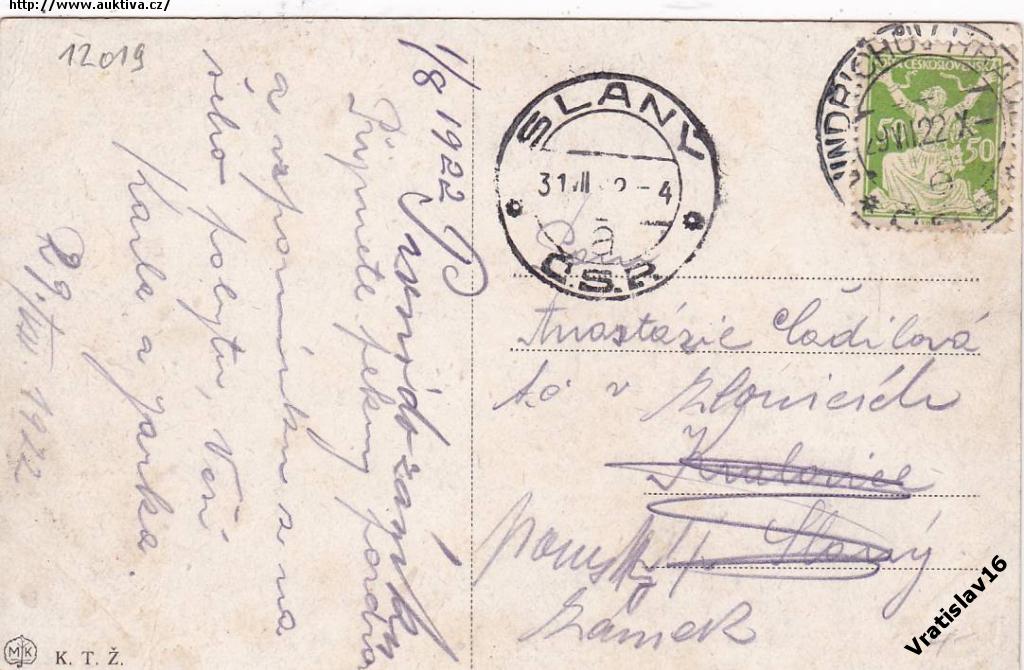 http://www.auktiva.cz/
12019
1/8 1922
Přijměte pěkný pozdrav
a vzpomínku z na
šeho pobytu, Vaši
Karla a Jarka.
29./VII. 1922
SLANÝ
31.VII 2-4
a
Č.S.P.
JINDŘICHŮV HRADEC
29.VII.22.X
POŠTA ČESKOSLOVENSKÁ
50 50
Anastázie Čadilová
Zlonicích
Kralovice
Slaný
Zámek
K. T. Ž.
MK
Vratislav16